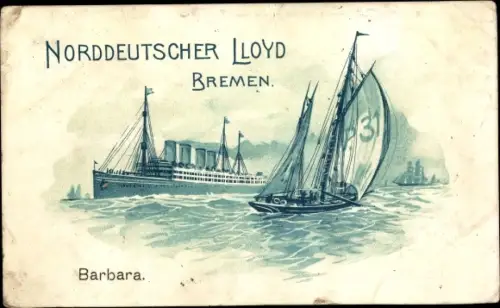 NORDDEUTSCHER LLOYD
BREMEN.
P31
Barbara.